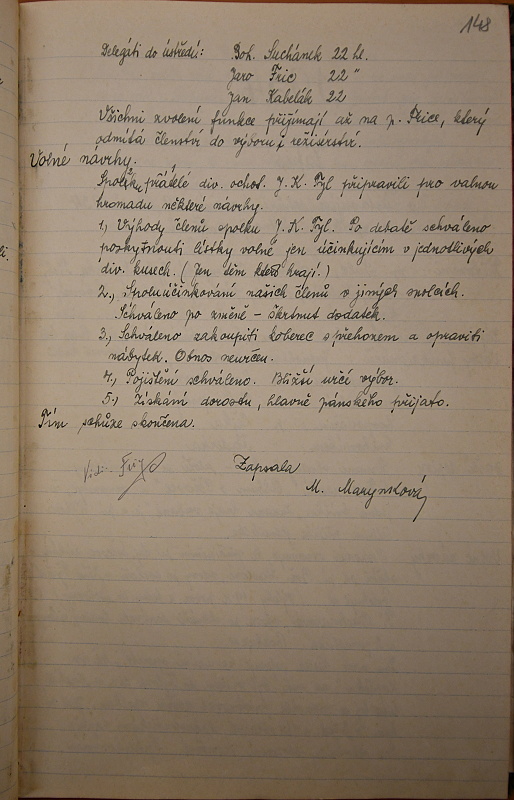 148
Delegáti do ústředí: Boh. Suchánek 22 hl.
Jaro Fric 22 "
Jan Kabelák 22
Všichni zvolení funkce přijímají až na p. Frice, který
odmítá členství do výboru i režisérství.
Volné návrhy.
Spolek přátelé div. ochot. J. K. Tyl připravili pro valnou
hromadu některé návrhy.
1., Výhody členů spolku J. K. Tyl. Po debatě schváleno
poskytnouti lístky volné jen účinkujícím v jednotlivých
div. kusech. (Jen těm kteří hrají.)
2., Spoluúčinkování našich členů v jiných spolcích.
Schváleno po změně – škrtnut dodatek.
3., Schváleno zakoupiti koberec s přehozem a opraviti
nábytek. Obnos neurčen.
4., Pojištění schváleno. Bližší určí výbor.
5., Získání dorostu, hlavně pánského přijato.
Tím schůze skončena.
Zapsala
M. Marynková